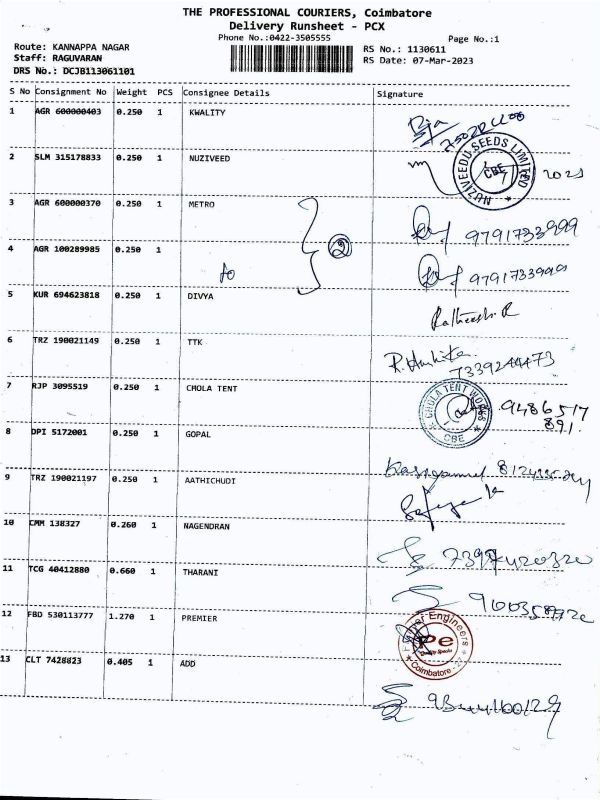 THE PROFESSIONAL COURIERS, Coimbatore
Delivery Runsheet - PCX
Phone No.:0422-3505555
Page No.:1
Route: KANNAPPA NAGAR
RS No.: 1130611
Staff: RAGUVARAN
RS Date: 07-Mar-2023
DRS No.: DCJB113061101
S No Consignment No Weight PCS Consignee Details Signature
1 AGR 600000403 0.250 1 KWALITY
2 SLM 315178833 0.250 1 NUZIVEED
NUZIVEEDU SEEDS LIMITED CBE
3 AGR 600000370 0.250 1 METRO 9791733999
2
4 AGR 100289985 0.250 1 9791733999
to
5 KUR 694623818 0.250 1 DIVYA
6 TRZ 190021149 0.250 1 TTK 7339244473
7 RJP 3095519 0.250 1 CHOLA TENT 9486517
891
CHOLA TENT WORKS CBE
8 DPI 5172001 0.250 1 GOPAL
9 TRZ 190021197 0.250 1 AATHICHUDI
10 CMM 138327 0.260 1 NAGENDRAN
11 TCG 40412880 0.660 1 THARANI
12 FBD 530113777 1.270 1 PREMIER
Engineers Pe Coimbatore
13 CLT 7428823 0.405 1 ADD